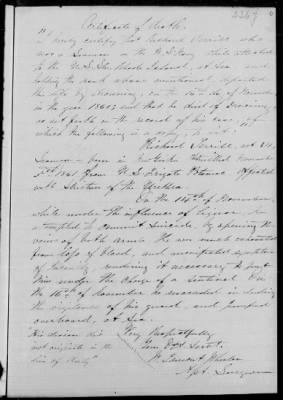 2267
Certificate of Death.
"I hereby certify that Richard
was a Seaman in the U.S. Navy, while attached
to the U.S. Str. Rhode Island, at Sea and
holding the rank above mentioned, departed
this life by drowning, on the 16th day of November
in the year 1861; and that he died of Drowning,
as set forth in the record of his case, of
which the following is a copy, to wit: "
Richard
Seaman - born in New York. Admitted November
1861 from U.S. Frigate Potomac affected
with Stricture of the Urethra.
On the 14th of November,
while under the influence of liquor, he
attempted to commit Suicide, by opening the
veins of both arms. He was much exhausted
from loss of blood, and manifested symptoms
of Insanity, rendering it necessary to put
him under the charge of a Sentinel. On
the 16th of November he succeeded in eluding
the vigilance of his guard, and jumped
overboard, at Sea.
His disease did Very Respectfully
not originate in the Your Obt. Servt.
line of duty" W.
Asst. Surgeon